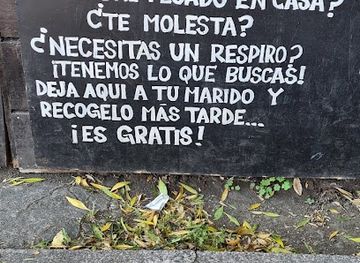 PESADO EN CASA?
¿TE MOLESTA?
¿NECESITAS UN RESPIRO?
¡TENEMOS LO QUE BUSCAS!
DEJA AQUI A TU MARIDO Y
RECOGELO MÁS TARDE...
¡ES GRATIS!